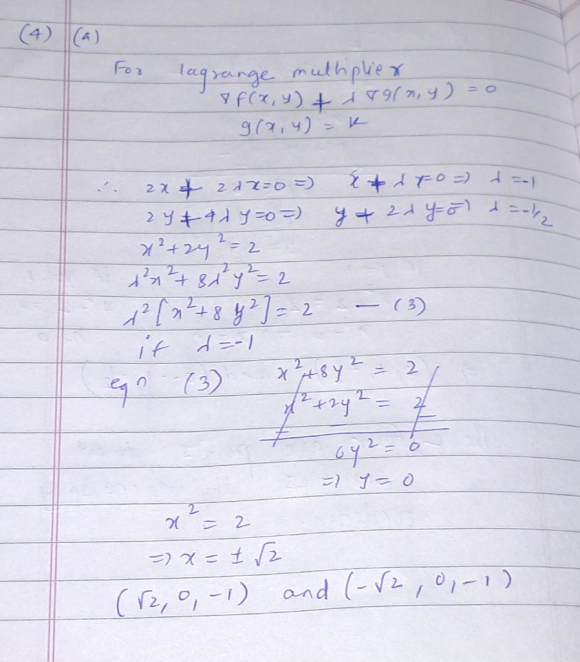 (4) (a)
For lagrange multiplier
∇f(x,y) + λ ∇g(x,y) = 0
g(x,y) = k
∴ 2x + 2λx=0 => x + λx=0 => λ=-1
2y + 4λy=0 => y + 2λy=0 => λ=-1/2
x²+2y²=2
λ²x²+8λ²y²=2
λ²[x²+8y²]=2 — (3)
if λ=-1
eqn (3) x²+8y² = 2
x²+2y² = 2
6y² = 0
=> y = 0
x² = 2
=> x = ±√2
(√2, 0, -1) and (-√2, 0, -1)